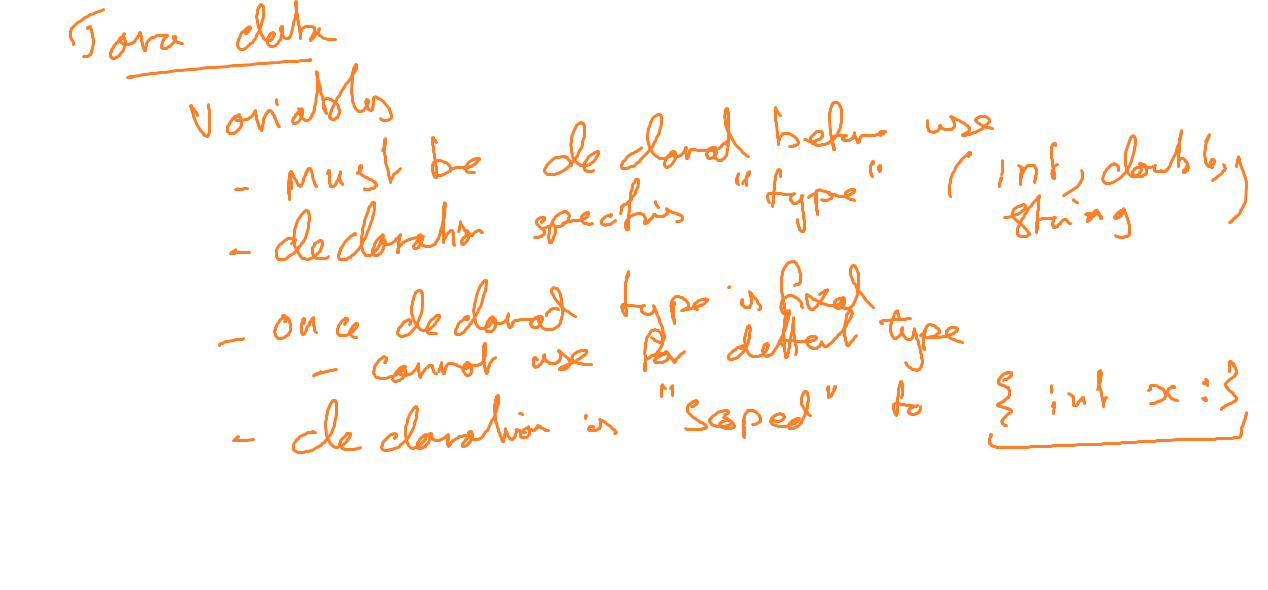 Java data
Variables
- Must be declared before use
- declaration specifies "type" (int, double, string)
- once declared type is fixed
- cannot use for different type
- declaration is "scoped" to { int x : }